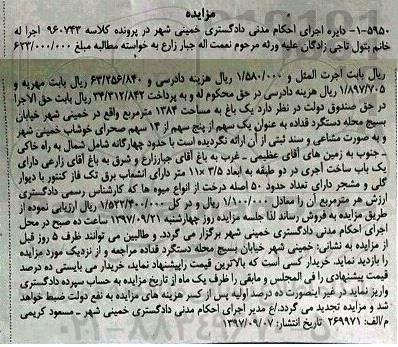 مزایده
۵۹۵۰-۱- دایره اجرای احکام مدنی دادگستری خمینی شهر در پرونده کلاسه ۹۶۰۷۴۳ اجرا له
خانم بتول تاجی زادگان علیه ورثه مرحوم نعمت اله جبار زارع به خواسته مطالبه مبلغ ۶۲۳/۰۰۰/۰۰۰
ریال بابت اجرت المثل و ۱/۵۸۰/۰۰۰ ریال هزینه دادرسی و ۶۳/۲۵۶/۸۴۰ ریال بابت مهریه و
۱/۸۹۷/۷۰۵ ریال هزینه دادرسی در حق محکوم له و به پرداخت ۳۴/۳۱۲/۸۴۲ بابت حق الاجرا
در حق صندوق دولت در نظر دارد یک باغ به مساحت ۱۳۸۴ مترمربع واقع در خمینی شهر خیابان
بسیج محله دستگرد قداده به عنوان یک سهم از پنج سهم از ۱۴ سهم صحرای خوشاب خمینی شهر
و به صورت مشاعی و سند ثبتی از آن ارائه نگردیده است با حدود چهارگانه شامل شمال به راه خاکی
، جنوب به زمین های آقای عظیمی ـ غرب به باغ آقای جبارزارع و شرق به باغ آقای زارعی دارای
یک باب ساخت آجری در دو طبقه و به ابعاد ۳/۵×۱۱ متر دارای انشعاب برق تک فاز کنتور با دیوار
گلی و مشجر دارای تعداد حدود ۵۰ اصله درخت از انواع میوه ها که کارشناس رسمی دادگستری
ارزش هر مترمربع آن را معادل ۱/۱۰۰/۰۰۰ ریال و در کل ۱/۵۲۲/۴۰۰/۰۰۰ ریال ارزیابی نموده از
طریق مزایده به فروش رساند لذا جلسه مزایده روز چهارشنبه ۱۳۹۷/۰۹/۲۱ ساعت ده صبح در محل
اجرای احکام مدنی دادگستری خمینی شهر برگزار می گردد. و طالبین می توانند ظرف ۵ روز قبل
از مزایده به نشانی: خمینی شهر خیابان بسیج محله دستگرد قداده مراجعه و از نزدیک مورد مزایده
را بازدید نماید. خریدار کسی است که بالاترین قیمت راپیشنهاد نماید، خریدار می بایستی ده درصد
قیمت پیشنهادی را فی المجلس و مابقی را ظرف یک ماه از تاریخ مزایده به حساب سپرده دادگستری
واریز نماید در غیر اینصورت ده درصد اولیه پس از کسر هزینه های مزایده به نفع دولت ضبط خواهد
شد و مزایده تجدید می گردد./ع مدیر اجرای احکام مدنی دادگستری خمینی شهر ـ مسعود کریمی
م/الف: ۲۶۹۹۷۱ تاریخ انتشار: ۱۳۹۷/۰۹/۰۷